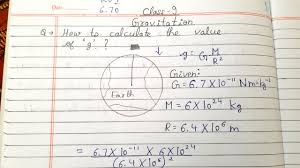 6.70
Class-9
Gravitation
Q → How to calculate the value
of 'g'?
g = G M/R²
Given:
Earth
G = 6.7 X 10⁻¹¹ Nm²kg⁻²
M = 6 X 10²⁴ kg
R = 6.4 X 10⁶ m
= 6.7 X 10⁻¹¹ X 6 X 10²⁴
(6.4 X 10⁶)²